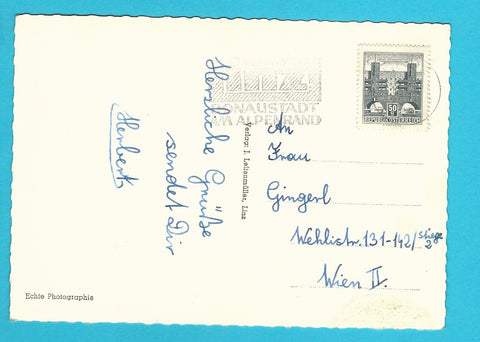 Herzliche Grüße
sendet Dir
Herbert
LINZ
DONAUSTADT
AM ALPENRAND
50
REPUBLIK ÖSTERREICH
Verlag: J.
Linz
An
Frau
Gingerl
Wehlistr. 131-142/Stiege 2
Wien II.
Echte Photographie